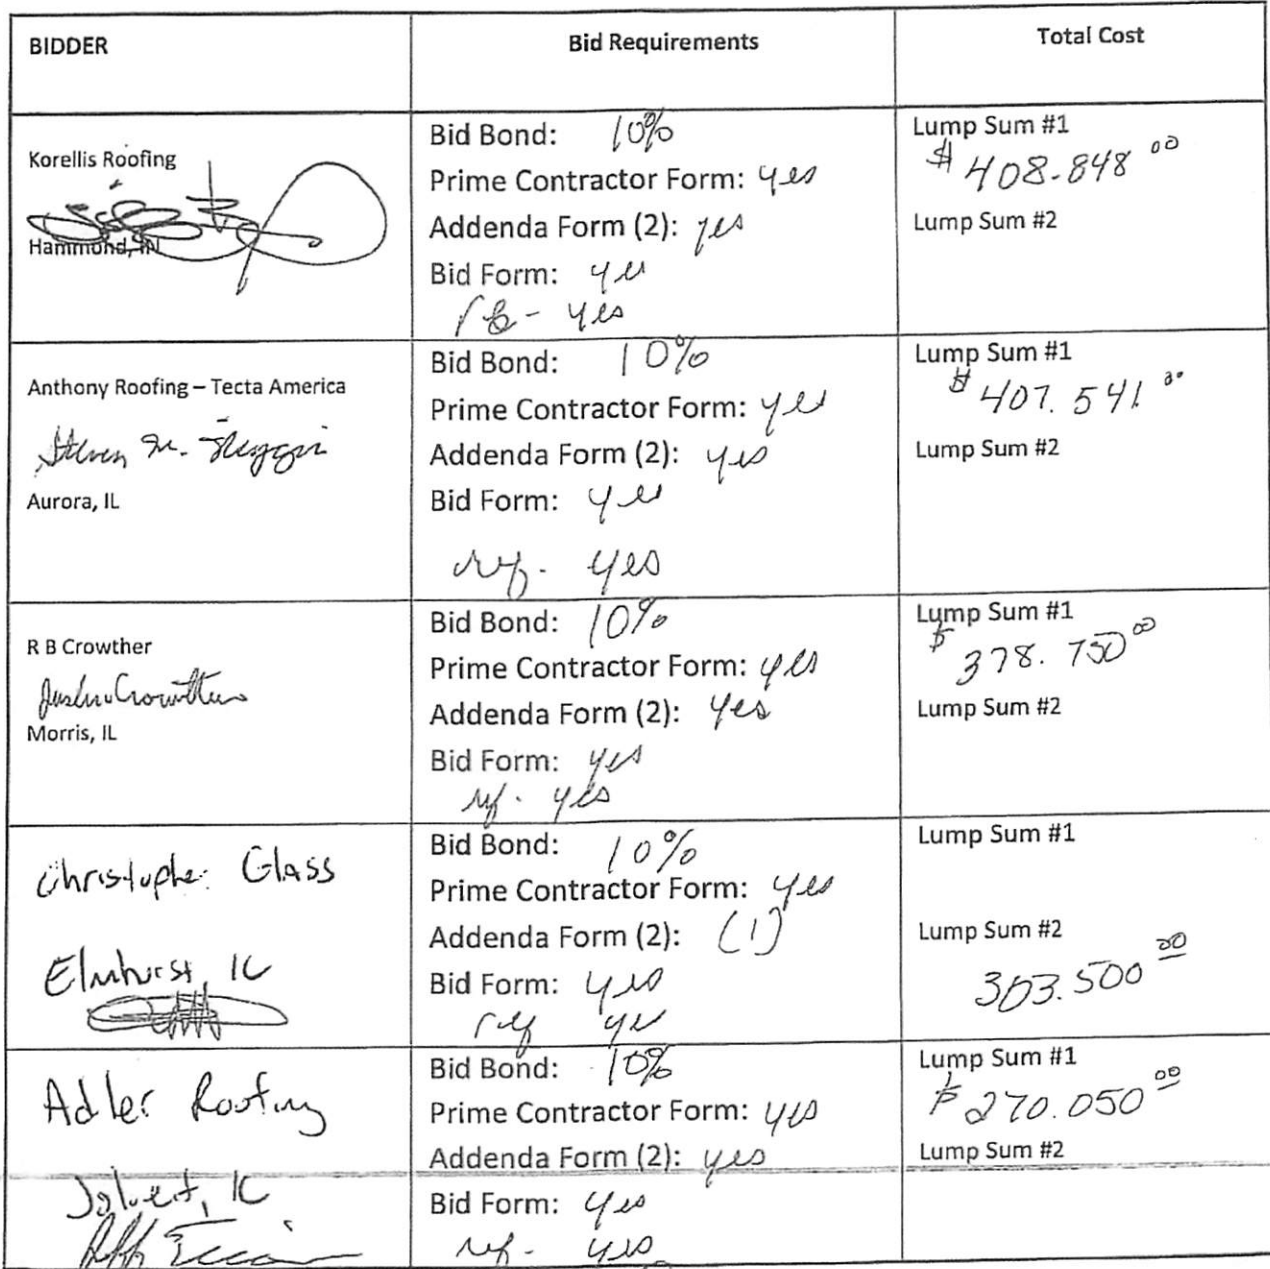 BIDDER
Bid Requirements
Total Cost
Korellis Roofing
Hammond, IN
Bid Bond: 10%
Prime Contractor Form: yes
Addenda Form (2): yes
Bid Form: yes
yes
Lump Sum #1
$ 408.848 00
Lump Sum #2
Anthony Roofing – Tecta America
Steven M.
Aurora, IL
Bid Bond: 10%
Prime Contractor Form: yes
Addenda Form (2): yes
Bid Form: yes
ref. yes
Lump Sum #1
$ 407.541. 00
Lump Sum #2
R B Crowther
Crowther
Morris, IL
Bid Bond: 10%
Prime Contractor Form: yes
Addenda Form (2): yes
Bid Form: yes
ref. yes
Lump Sum #1
$ 378.750 00
Lump Sum #2
Christopher Glass
Elmhurst, IL
Bid Bond: 10%
Prime Contractor Form: yes
Addenda Form (2): (1)
Bid Form: yes
ref yes
Lump Sum #1
Lump Sum #2
303.500 00
Adler Roofing
Joliet, IL
Bid Bond: 10%
Prime Contractor Form: yes
Addenda Form (2): yes
Bid Form: yes
ref. yes
Lump Sum #1
$ 270.050 00
Lump Sum #2